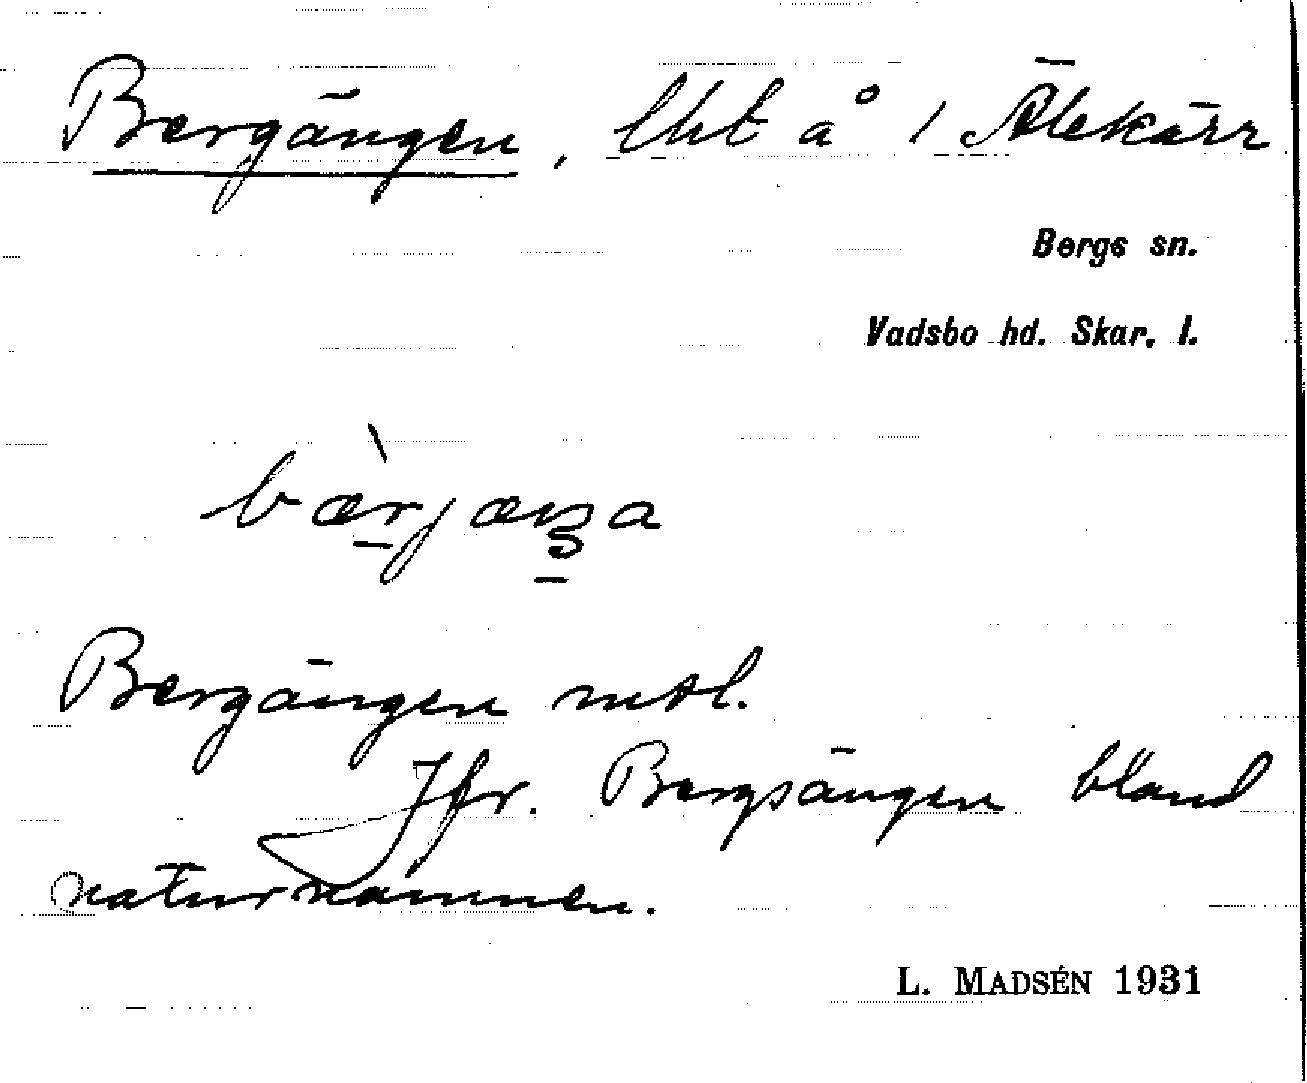 Bergängen, lht å 1 Älekärr
Bergs sn.
Vadsbo hd. Skar. l.
Bergängen mtl.
Jfr. Bergsängen bland
naturnamnen.
L. MADSÉN 1931